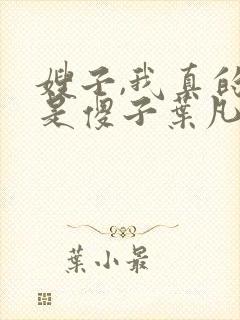 嫂子,我真的
是傻子葉凡
葉小最